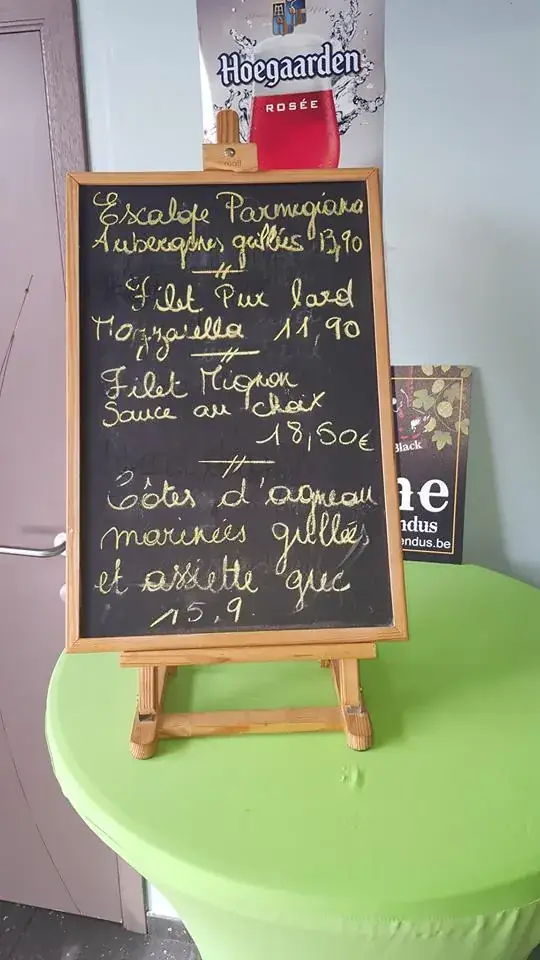 Hoegaarden
ROSÉE
Escalope Parmegiana
Aubergines grillées 13,90
Filet Pur lard
Mozzarella 11,90
Filet Mignon
Sauce au choix
18,50€
Côtes d'agneau
marinées grillées
et assiette grec
15,9
Black
ne
ndus
endus.be